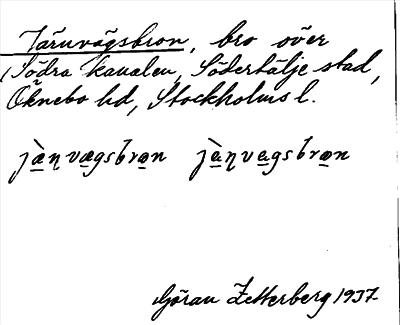 Järnvägsbron, bro över
Södra kanalen, Södertälje stad,
Öknebo hd, Stockholms l.
jæ̀ṇvægsbron jàṇvagsbron
Göran Zetterberg 1937